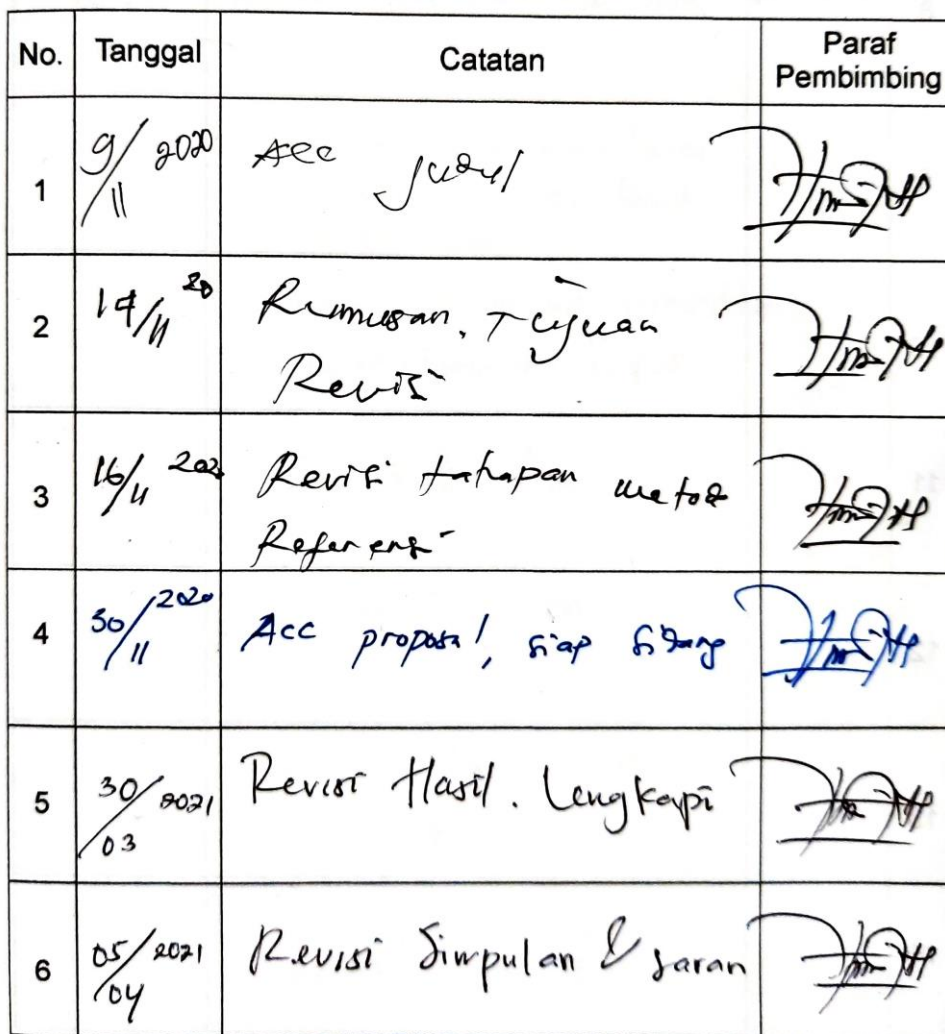 No. Tanggal Catatan Paraf Pembimbing
1 9/11 2020 Acc Judul
2 14/11 20 Rumusan, Tujuan
Revisi
3 16/11 202 Revisi tahapan metode
Referensi
4 30/11 2020 Acc proposal, siap sidang
5 30/03 2021 Revisi Hasil. Lengkapi
6 05/04 2021 Revisi Simpulan & saran